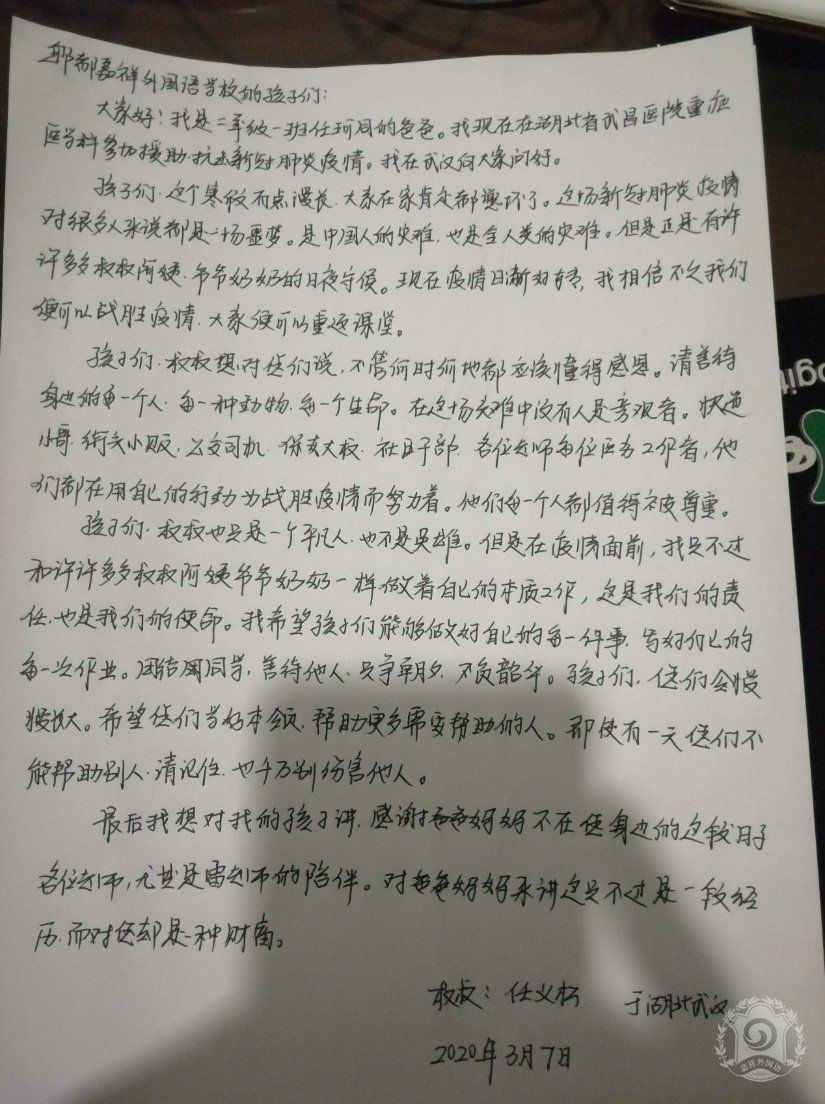 郫都嘉祥外国语学校的孩子们:
大家好!我是二年级一班任珂同的爸爸。我现在在湖北省武昌医院重症
医学科参加援助抗击新冠肺炎疫情。我在武汉向大家问好。
孩子们.这个寒假有点漫长.大家在家肯定都憋坏了。这场新冠肺炎疫情
对很多人来说都是一场噩梦。是中国人的灾难,也是全人类的灾难。但是正是有许
许多多叔叔阿姨.爷爷奶奶的日夜守候。现在疫情日渐好转,我相信不久我们
便可以战胜疫情.大家便可以重返课堂。
孩子们.叔叔想对你们说,不管何时何地都应该懂得感恩。请善待
身边的每一个人.每一种动物.每一个生命。在这场灾难中没有人是旁观者。快递
小哥.街头小贩.公交司机.保安大叔.社区干部.各位老师每位医务工作者,他
们都在用自己的行动为战胜疫情而努力着。他们每一个人都值得被尊重。
孩子们.叔叔也只是一个平凡人.也不是英雄。但是在疫情面前,我只不过
和许许多多叔叔阿姨爷爷奶奶一样做着自己的本质工作,这是我们的责
任,也是我们的使命。我希望孩子们能够做好自己的每一件事.写好自己的
每一次作业。团结同学,善待他人.只争朝夕.不负韶华。孩子们.你们会慢
慢长大。希望你们学好本领.帮助更多需要帮助的人。即使有一天你们不
能帮助别人.请记住.也千万别伤害他人。
最后我想对我的孩子讲.感谢爸爸妈妈不在你身边的这段日子
各位老师,尤其是雷老师的陪伴。对爸爸妈妈来讲这只不过是一段经
历.而对你却是一种财富。
叔叔:任义松 于湖北武汉
2020年3月7日
嘉祥外国语